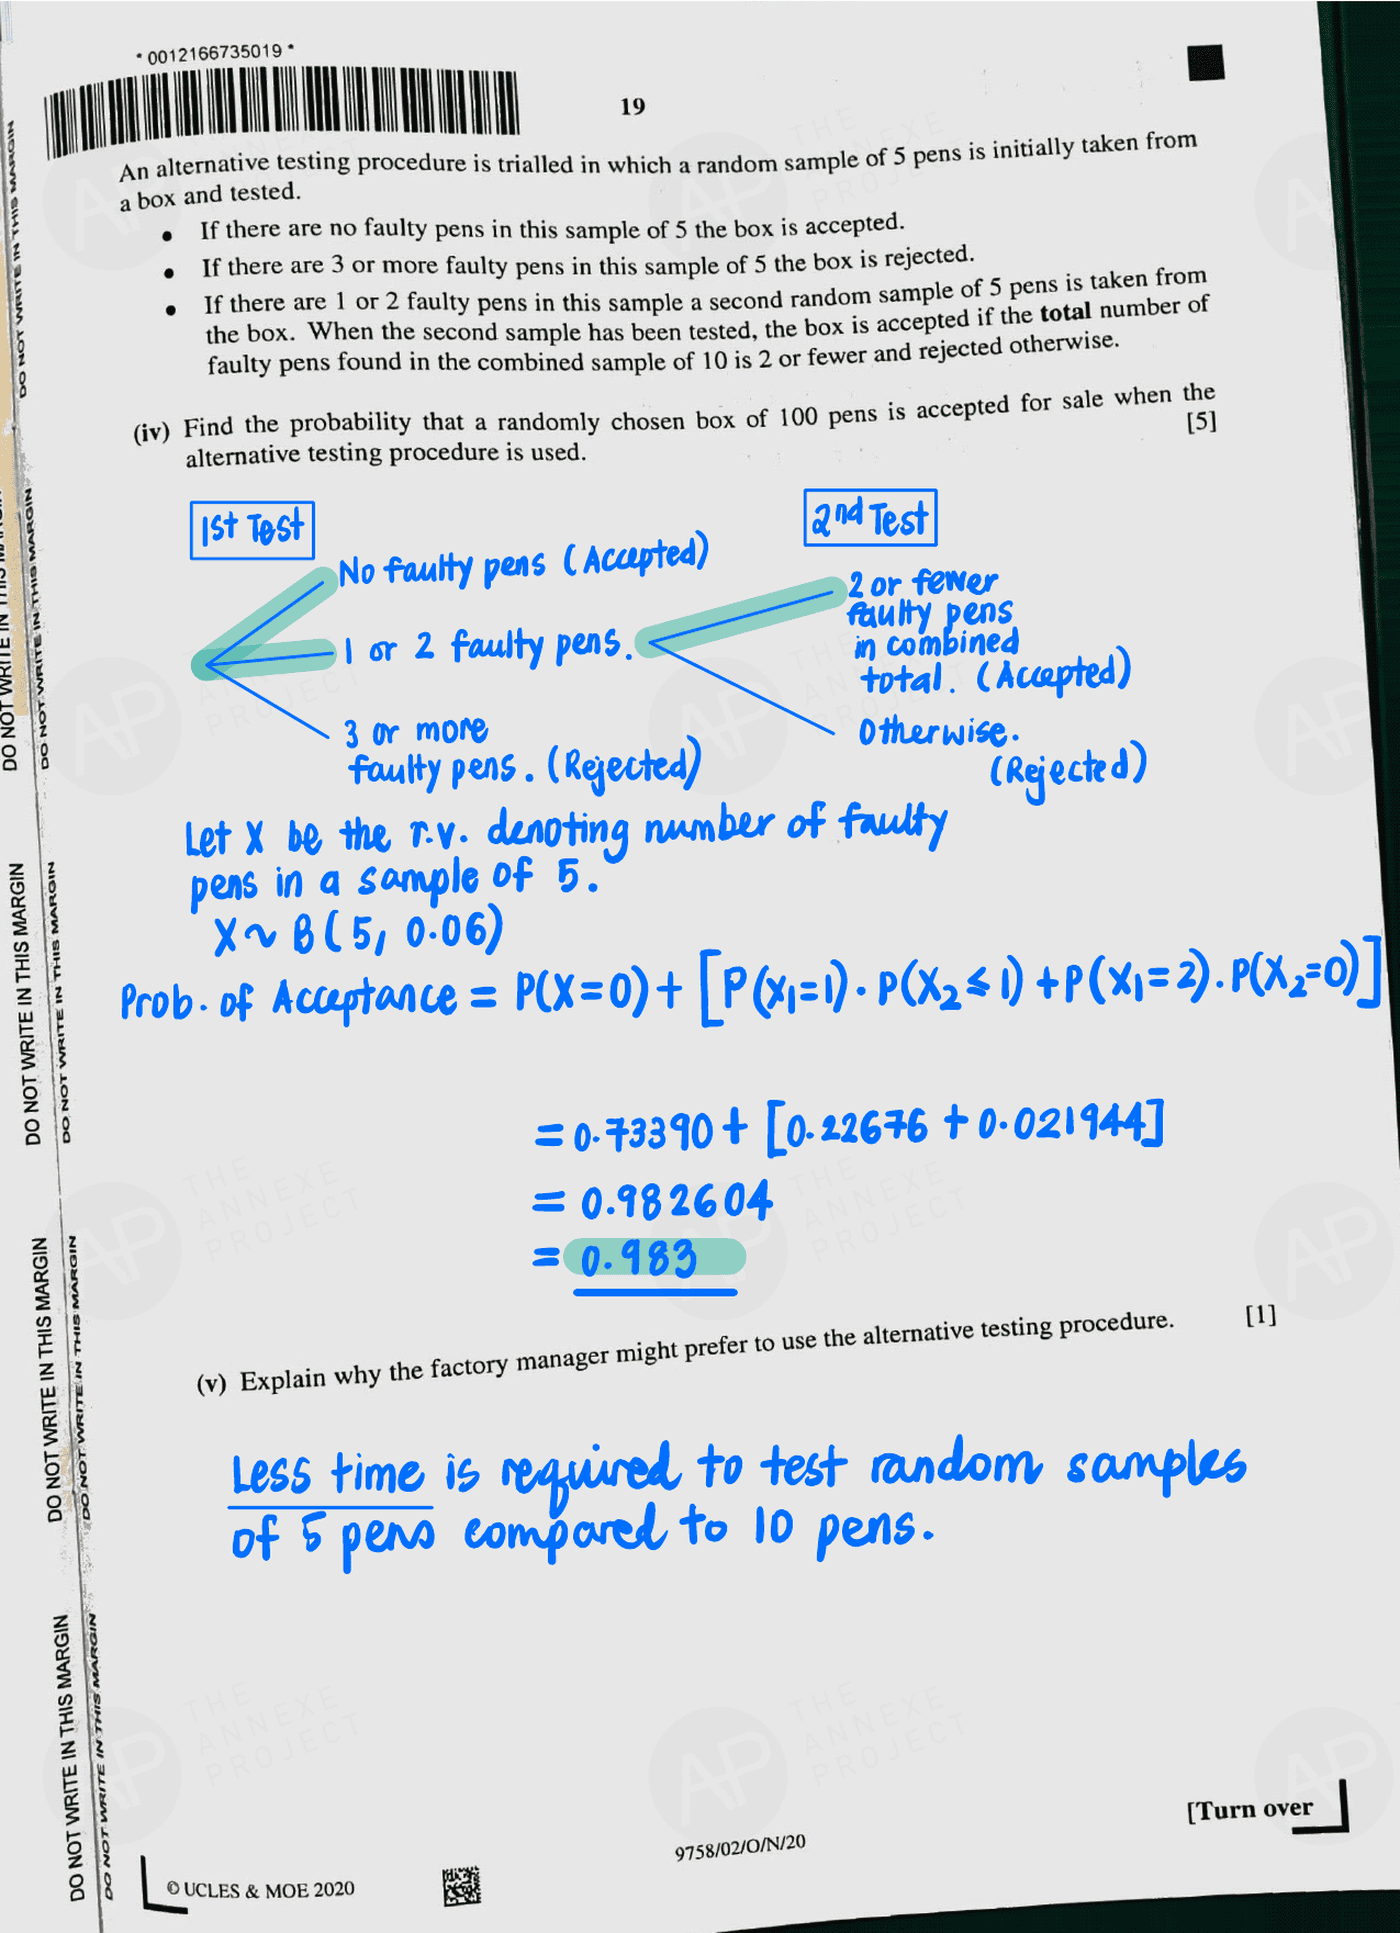 * 0012166735019 *
19
An alternative testing procedure is trialled in which a random sample of 5 pens is initially taken from
a box and tested.
• If there are no faulty pens in this sample of 5 the box is accepted.
• If there are 3 or more faulty pens in this sample of 5 the box is rejected.
• If there are 1 or 2 faulty pens in this sample a second random sample of 5 pens is taken from
the box. When the second sample has been tested, the box is accepted if the total number of
faulty pens found in the combined sample of 10 is 2 or fewer and rejected otherwise.
(iv) Find the probability that a randomly chosen box of 100 pens is accepted for sale when the
alternative testing procedure is used. [5]
1st Test
No faulty pens (Accepted)
1 or 2 faulty pens.
3 or more
faulty pens. (Rejected)
2nd Test
2 or fewer
faulty pens
in combined
total. (Accepted)
Otherwise.
(Rejected)
Let X be the r.v. denoting number of faulty
pens in a sample of 5.
X ~ B(5, 0.06)
Prob. of Acceptance = P(X=0) + [P(X₁=1) · P(X₂ ≤ 1) + P(X₁=2) . P(X₂=0)]
= 0.73390 + [0.22676 + 0.021944]
= 0.982604
= 0.983
(v) Explain why the factory manager might prefer to use the alternative testing procedure. [1]
Less time is required to test random samples
of 5 pens compared to 10 pens.
[Turn over
© UCLES & MOE 2020
9758/02/O/N/20
DO NOT WRITE IN THIS MARGIN
DO NOT WRITE IN THIS MARGIN
DO NOT WRITE IN THIS MARGIN
DO NOT WRITE IN THIS MARGIN
DO NOT WRITE IN THIS MARGIN
DO NOT WRITE IN THIS MARGIN
DO NOT WRITE IN THIS MARGIN
DO NOT WRITE IN THIS MARGIN
AP THE ANNEXE PROJECT